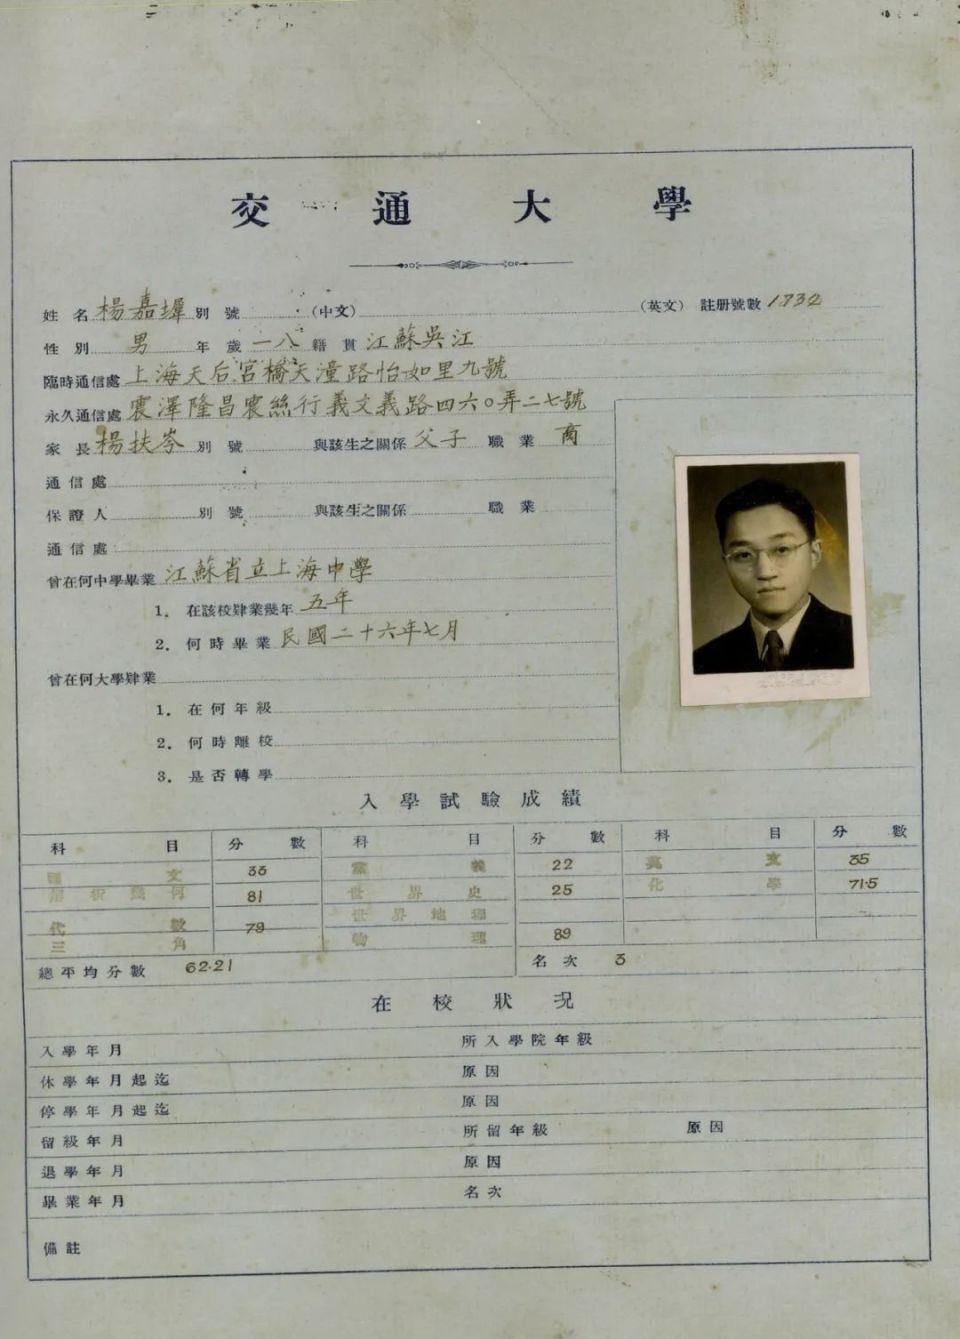 交通大學
姓名 楊嘉墀 別號 (中文) (英文) 註册號數 1832
性別 男 年歲 一八 籍貫 江蘇吳江
臨時通信處 上海天后宮橋天潼路怡如里九號
永久通信處 震澤隆昌震絲行義文義路四六〇弄二七號
家長 楊扶岑 別號 與該生之關係 父子 職業 商
通信處
保證人 別號 與該生之關係 職業
通信處
曾在何中學畢業 江蘇省立上海中學
1. 在該校肄業幾年 五年
2. 何時畢業 民國二十六年七月
曾在何大學肄業
1. 在何年級
2. 何時離校
3. 是否轉學
入學試驗成績
科目 分數 科目 分數 科目 分數
國文 33 黨義 22 英文 35
解析幾何 81 世界史 25 化學 71.5
世界地理
代數 79
三角 物理 89
總平均分數 62.21 名次 3
在校狀況
入學年月 所入學院年級
休學年月起迄 原因
停學年月起迄 原因
留級年月 所留年級 原因
退學年月 原因
畢業年月 名次
備註